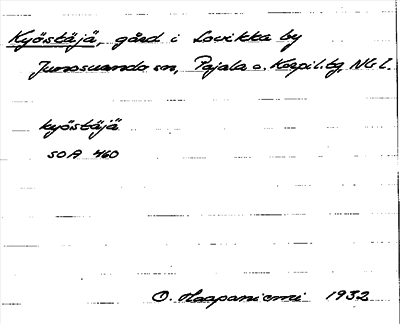 Kyöstäjä, gård i Lovikka by
Junosuando sn, Pajala o. Korpil. tg, Nb l.
kyöstäjä
SOA 460
O. Haapaniemi 1932